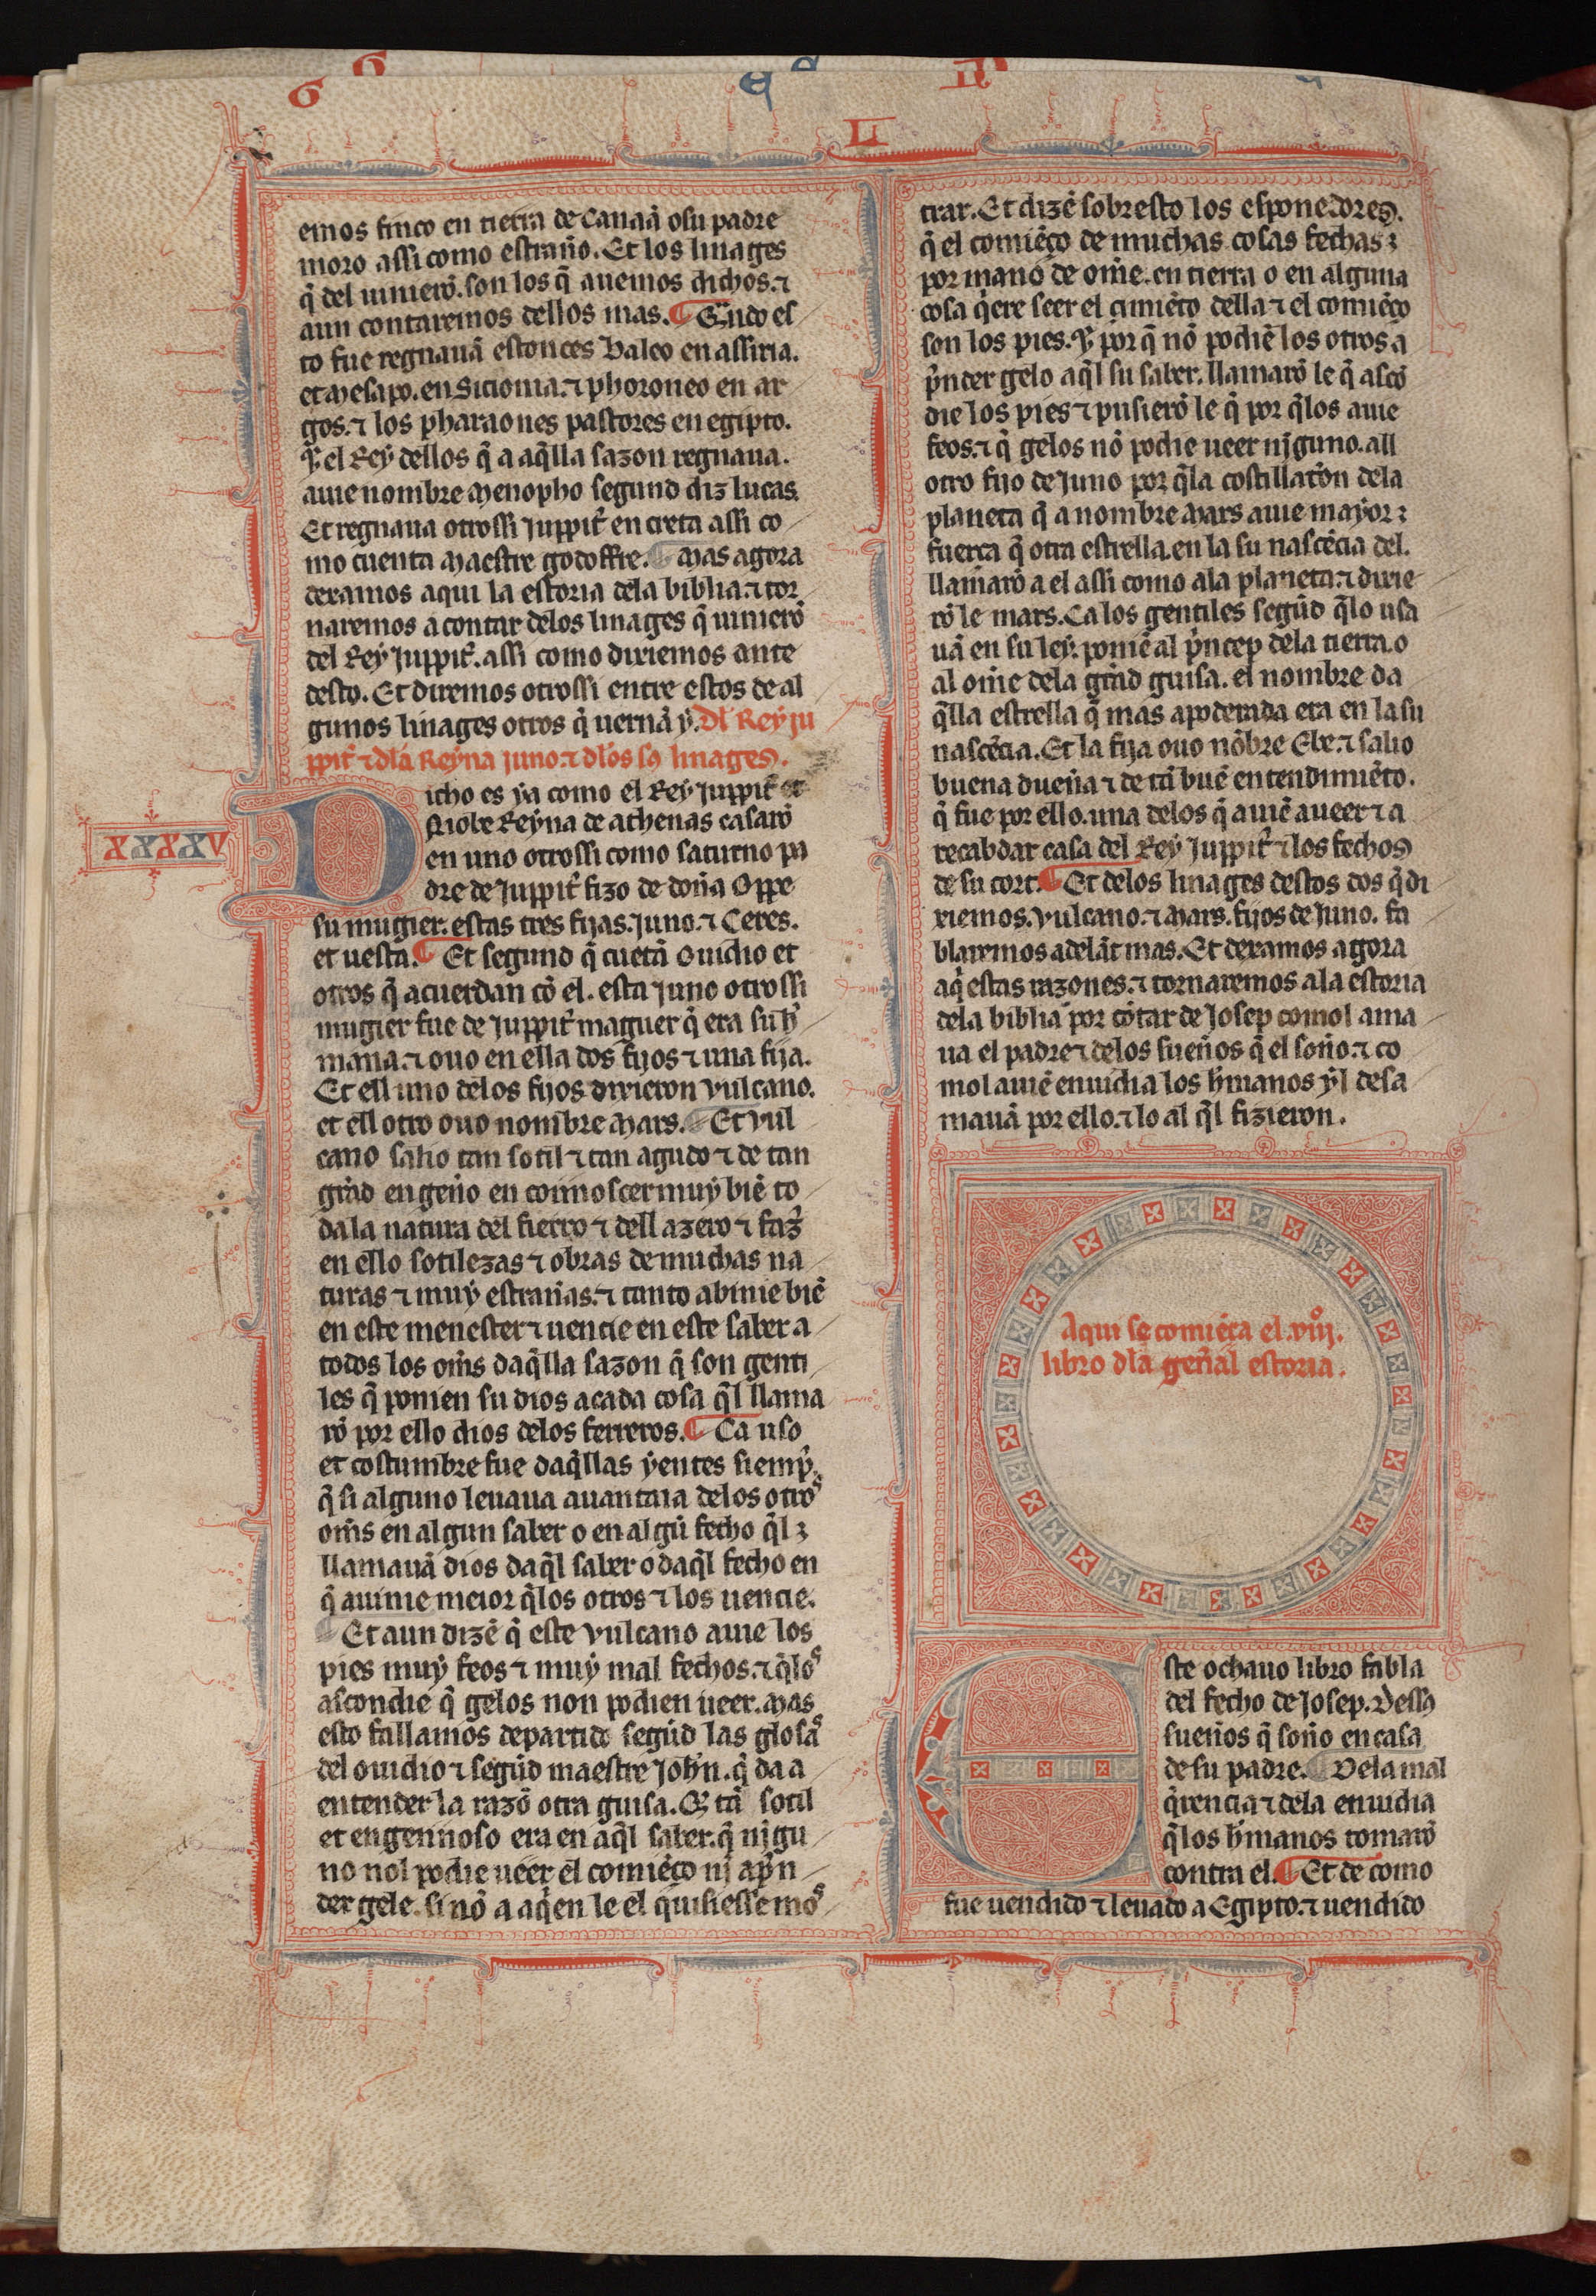 LI
emos finco en tierra de Canaã o su padre
moro assi como estraño. Et los linages
q̃ del uinierõ. son los q̃ auemos dichos. ⁊
aun contaremos dellos mas. ¶ Qũdo es
to fue regnauã estonces Baleo en assiria.
et Mesapo. en Sicionia. ⁊ phoroneo en ar
gos. ⁊ los pharaones pastores en egipto.
⁊ el Rey dellos q̃ a aq̃lla sazon regnaua.
auie nombre Menopho segund diz lucas.
Et regnaua otrossi Juppit̃ en creta assi co
mo cuenta Maestre godoffre. ¶ Mas agora
dexamos aqui la estoria dela biblia. ⁊ tor
naremos a contar delos linages q̃ uinierõ
del Rey Juppit̃. assi como dixiemos ante
desto. Et diremos otrossi entre estos de al
gunos linages otros q̃ uernã y. Dl̃ Rey ju
ppit̃ ⁊ dl̃a Reyna juno. ⁊ dl̃os sꝯ linages.
XXXXV
Dicho es ya como el Rey Juppit̃ et
Niobe Reyna de athenas casarõ
en uno otrossi como saturno pa
dre de Juppit̃ fizo de doña Oppe
su mugier. estas tres fijas. Juno. ⁊ Ceres.
et uesta. ¶ Et segund q̃ cuẽtã Ouidio et
otros q̃ acuerdan cõ el. esta Juno otrossi
mugier fue de Juppit̃ maguer q̃ era su h̃
mana. ⁊ ouo en ella dos fijos ⁊ una fija.
Et ell uno delos fijos dixieron Vulcano.
et ell otro ouo nombre Mars. ¶ Et Vul
cano salio tan sotil ⁊ tan agudo ⁊ de tan
grãd engeño en connoscer muy biẽ to
da la natura del fierro ⁊ dell azero ⁊ faz̃
en ello sotilezas ⁊ obras de muchas na
turas ⁊ muy estrañas. ⁊ tanto abinie biẽ
en este menester ⁊ uencie en este saber a
todos los om̃s daq̃lla sazon q̃ son genti
les q̃ ponien su dios a cada cosa q̃l llama
rõ por ello dios delos ferreros. ¶ Ca uso
et costumbre fue daq̃llas yentes siemp̃.
q̃ si alguno leuaua auantaia delos otros
om̃s en algun saber o en algũ fecho q̃l
llamauã dios daq̃l saber o daq̃l fecho en
q̃ auinie meior q̃los otros ⁊ los uencie.
¶ Et aun dizẽ q̃ este Vulcano auie los
pies muy feos ⁊ muy mal fechos. ⁊ q̃los
ascondie q̃ gelos non podien ueer. Mas
esto fallamos departido segũd las glosas
del ouidio ⁊ segũd maestre Joh̃n. q̃ da a
entender la razõ otra guisa. Q̃ tã sotil
et engennoso era en aq̃l saber. q̃ nĩgu
no nol podie ueer el comiẽço nĩ ap̃n
der gele. si nõ a aq̃en le el quisiesse mos
trar. Et dizẽ sobresto los esponedores.
q̃ el comiẽço de muchas cosas fechas
por mano de om̃e. en tierra o en alguna
cosa q̃ere seer el cimiẽto della ⁊ el comiẽço
son los pies. ⁊ por q̃ nõ podiẽ los otros a
p̃nder gelo aq̃l su saber. llamarõ le q̃ ascõ
die los pies ⁊ pusierõ le q̃ por q̃los auie
feos. ⁊ q̃ gelos nõ podie ueer nĩguno. all
otro fijo de Juno por q̃la costillatiõn dela
planeta q̃ a nombre Mars auie mayor
fuerça q̃ otra estrella. en la su nascẽcia del.
llamarõ a el assi como ala planeta. ⁊ dixie
rõ le mars. Ca los gentiles segũd q̃lo usa
uã en su ley. poniẽ al p̃ncep dela tierra. o
al om̃e dela grãd guisa. el nombre da
q̃lla estrella q̃ mas apoderada era en la su
nascẽcia. Et la fija ouo nõbre Ebe. ⁊ salio
buena dueña ⁊ de tã buẽ entendimiẽto.
q̃ fue por ello. una delos q̃ auiẽ a ueer ⁊ a
recabdar casa del Rey Juppit̃ ⁊ los fechos
de su cort. ¶ Et delos linages destos dos q̃ di
xiemos. Vulcano. ⁊ Mars. fijos de Juno. fa
blaremos adelãt mas. Et dexamos agora
aq̃ estas razones. ⁊ tornaremos ala estoria
dela biblia por cõtar de Josep comol ama
ua el padre ⁊ delos sueños q̃ el soño. ⁊ co
mol auiẽ enuidia los h̃manos yl desa
mauã por ello. ⁊ lo al q̃l fizieron.
Aqui se comiẽça el .viijº.
libro dl̃a geñal estoria.
Este ochauo libro fabla
del fecho de Josep. Delsꝯ
sueños q̃ soño en casa
de su padre. ¶ Dela mal
q̃rencia ⁊ dela enuidia
q̃los h̃manos tomarõ
contra el. ¶ Et de como
fue uendido ⁊ leuado a Egipto. ⁊ uendido